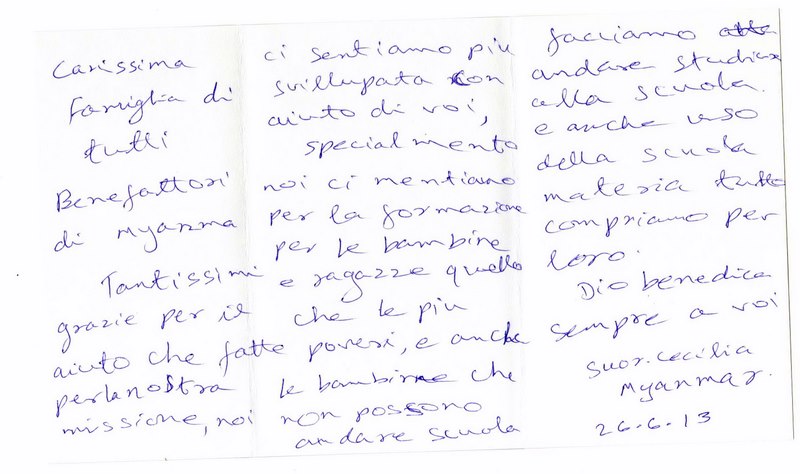 Carissima
famiglia di
tutti
Benefattori
di Myanma
Tantissimi
grazie per il
aiuto che fatte
perlanostra
missione, noi
ci sentiamo piu
svillupata con
aiuto di voi,
specialmento
noi ci mentiamo
per la formazione
per le bambine
e ragazze quello
che le piu
poveri, e anche
le bambine che
non possono
andare scuola
facciamo
andare studiare
alla scuola.
e anche uso
della scuola
materia tutto
compriamo per
loro.
Dio benedica
sempre a voi
suor. Cecilia
Myanmar.
26-6-13